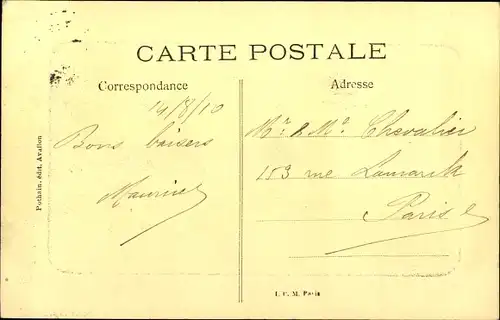 CARTE POSTALE
Correspondance
Adresse
14/8/10
Bons baisers
Maurice
Mr & Me Chevalier
153 rue Lamarck
Paris
Pothain, édit. Avallon
I. P. M. Paris